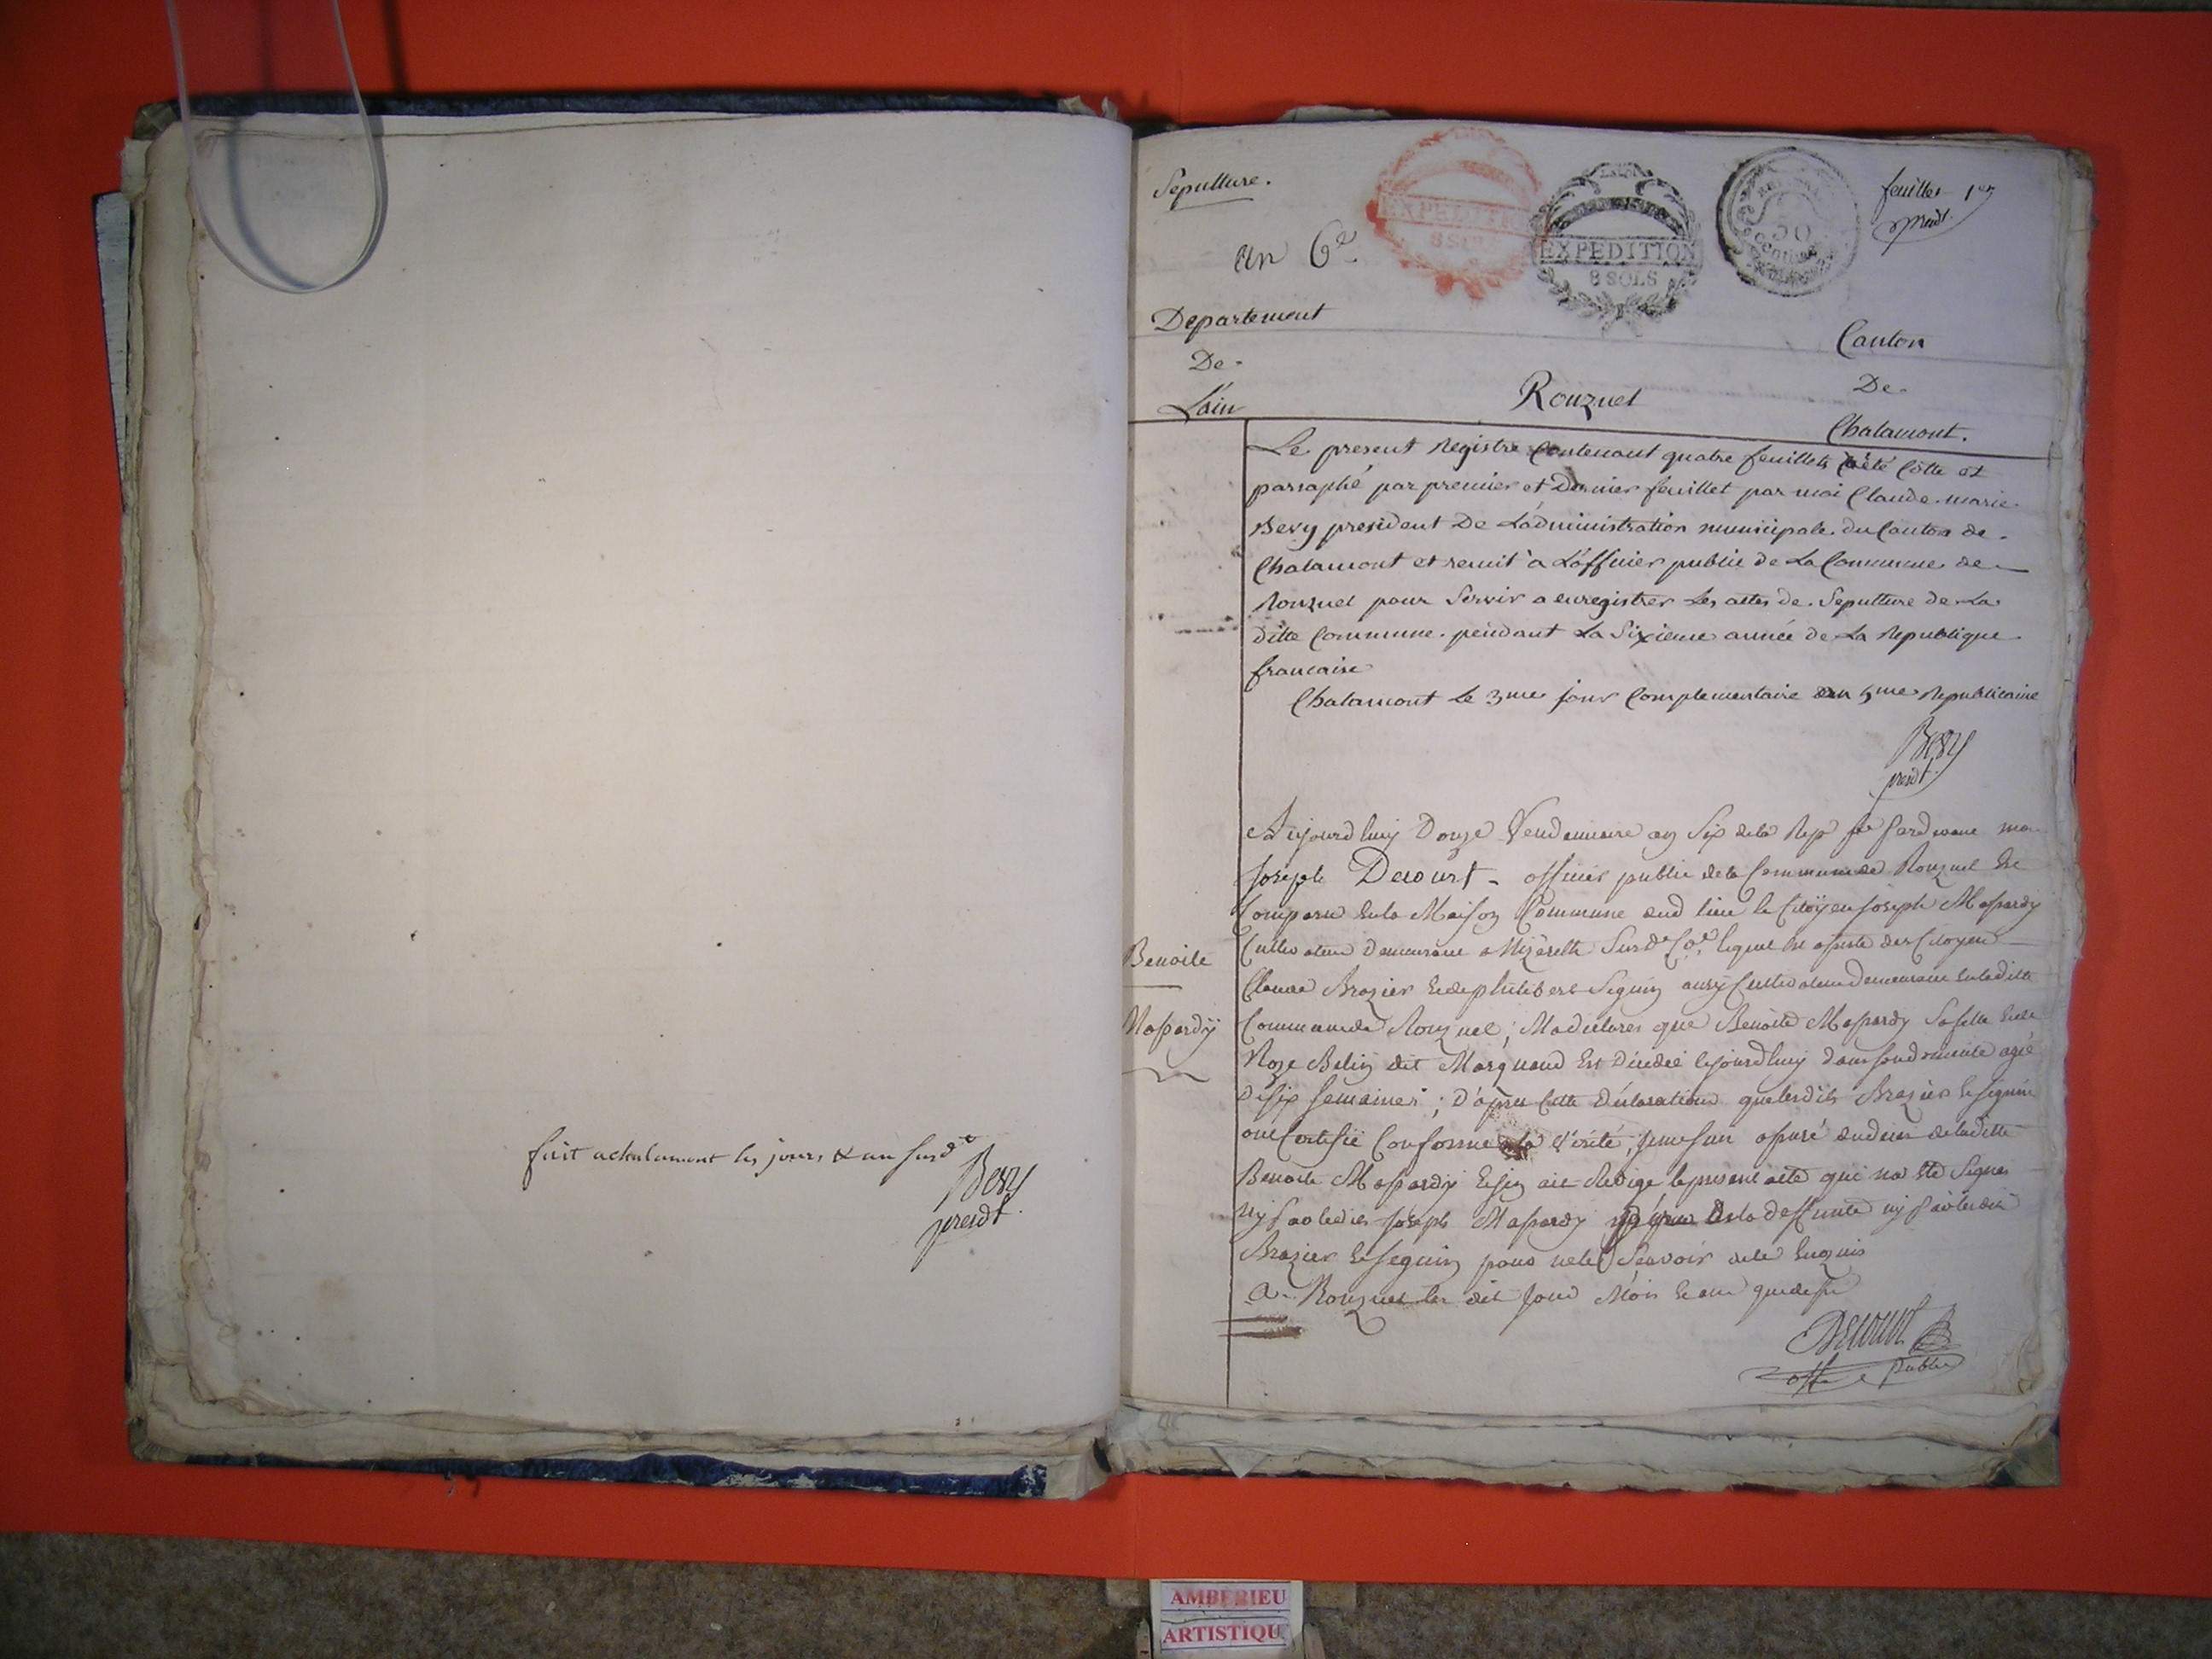 fait achalamont les jours & an susd.
Bevy
presidt.
Sepulture.
an 6e
EXPEDITION
8 SOLS
EXPEDITION
8 SOLS
50
feuillet 1er
presdt.
Departement
De
L'ain
Rouzuel
Canton
De
Chalamont.
Le present Registre Contenant quatre feuillets a été Côtte et
parraphé par premier et Dernier feuillet par moi Claude-marie
Bevy president De L'administration municipale du Canton de
Chalamont et remit à L'officier public de La Commune de
Rouzuel pour Servir a enregistrer Les actes de Sepulture de La
ditte Commune pendant La Sixieme année de La Republique
francaise
Chalamont Le 3me jour Complementaire an 5me Republicaine
Bevy
presdt.
Aujourdhuy Douze Vendemiaire an Six dela Rep
Joseph Decourt officier public dela Commune de Rouzuel
Comparu la Maison Commune dud lieu le Citöyen Joseph Mapardy
Cultivateur Demeurant lequel des Citoyens
Claude Brazier Philibert Seguin aussy Cultivateur demeurant ladite
Commune de Rouzuel ; Ma declarer que Benoite Mapardy Sa fille
Roze Belin dit Marquand Est Decedé cejourdhuy dans son agé
De Six Semaines ; D'apres Cette Déclaration que lesdits Brazier Seguin
ont Certifié Conforme a la Vérité, de ladite
Benoite Mapardy ait Redigé le present acte qui na Eté Signer
ny par ledit Joseph Mapardy dela deffunte ny par lesdits
Brazier Seguin pour ne le Scavoir de ce Enquis
a Rouzuel les dit Jour Mois et an que dessus
Benoite
Mapardÿ
Decourt
off public
AMBERIEU
ARTISTIQU